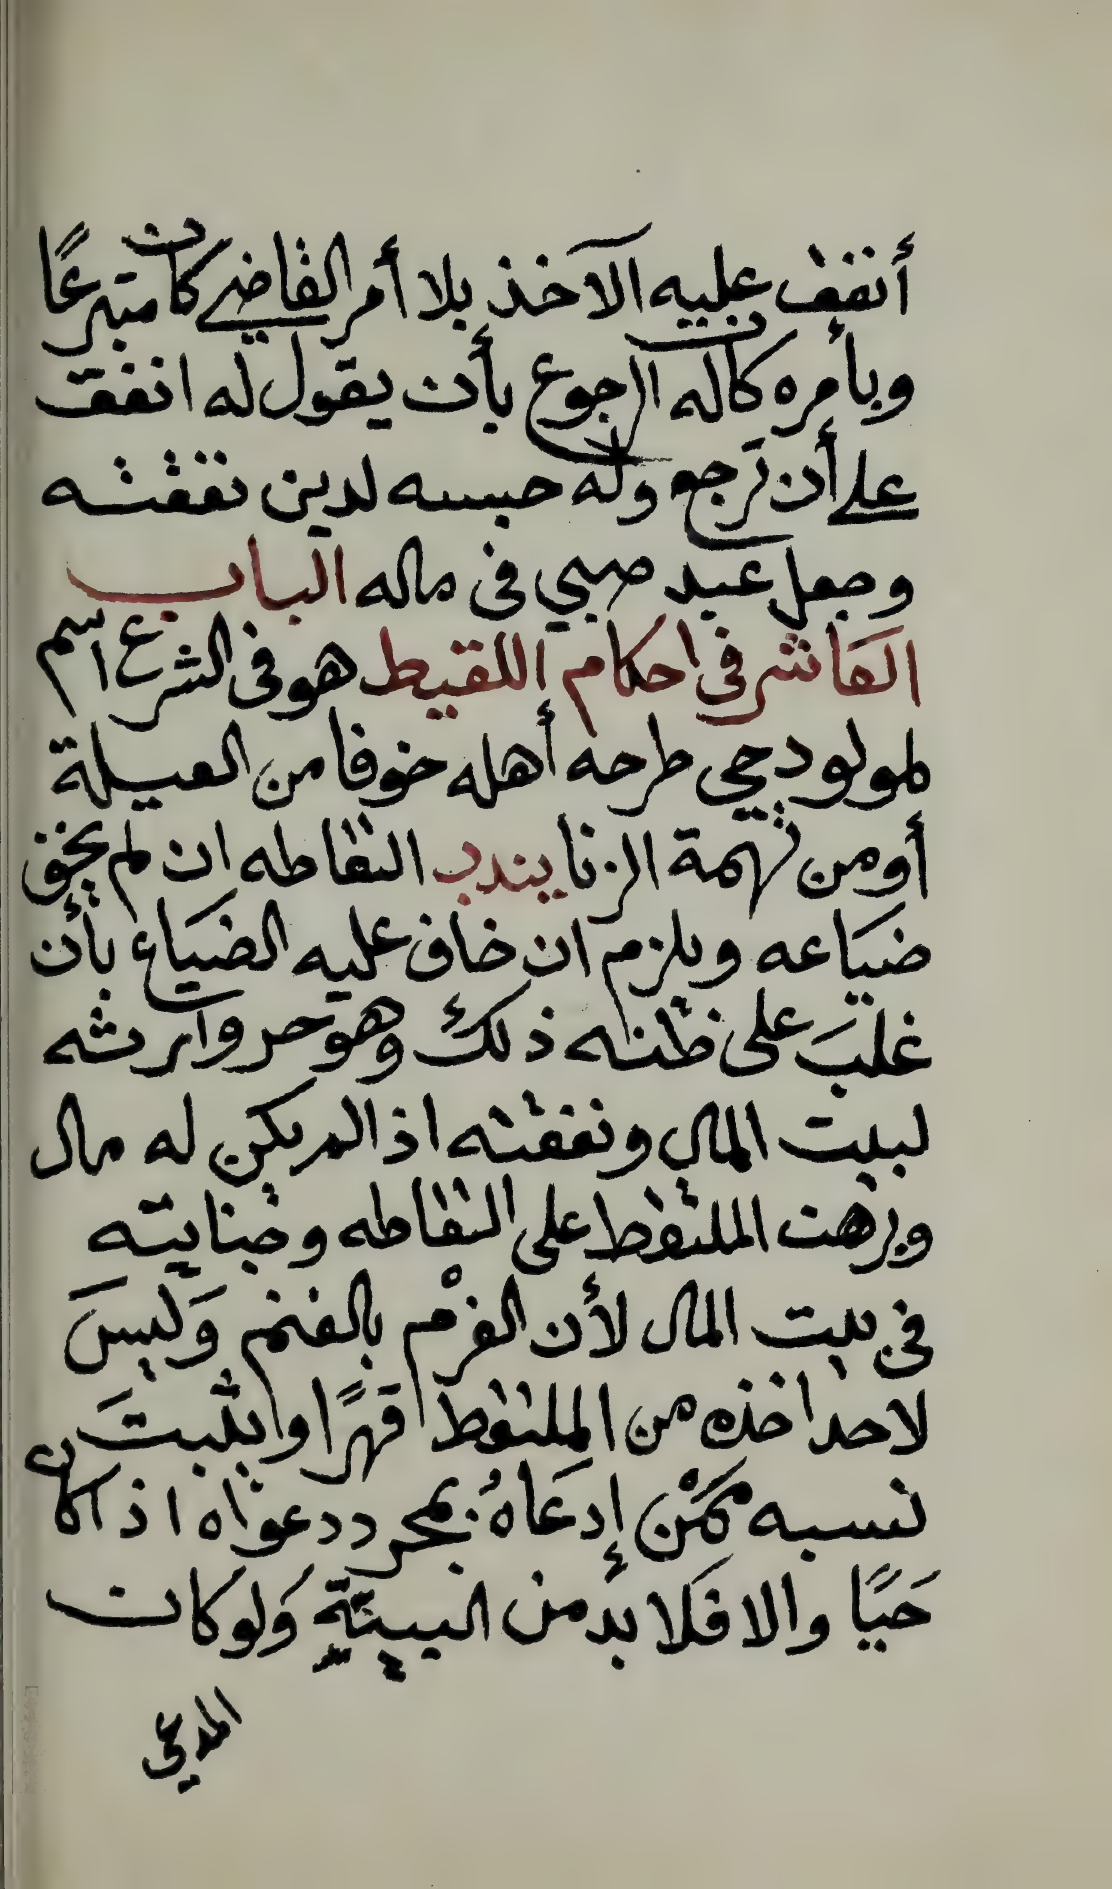 أنفق عليه الآخذ بلا أمر القاضي كان متبرعًا
وبأمره كان له الرجوع بأن يقول له انفق
على أن ترجع وله حبسه لدين نفقته
وجعل عبد صبي في ماله الباب
العاشر في احكام اللقيط هو في الشرع اسم
لمولود حي طرحه أهله خوفا من العيلة
أو من تهمة الزنا يندب التقاطه ان لم يخف
ضيَاعه ويلزم ان خاف عليه الضيَاع بأن
غلبَ على ظنه ذلك وهو حر وارثه
لبيت المال ونفقته اذا لم يكن له مال
وبرهن الملتقط على التقاطه وجنايته
في بيت المال لأن الغرْم بالغنم وَليسَ
لاحد اخذه من الملتقط قهرًا ويثبتَ
نسبه ممَّنْ إدعَاهُ بمجرد دعواه اذا كان
حَيًا والا فَلا بد من البينَةِ وَلو كان
المدعي